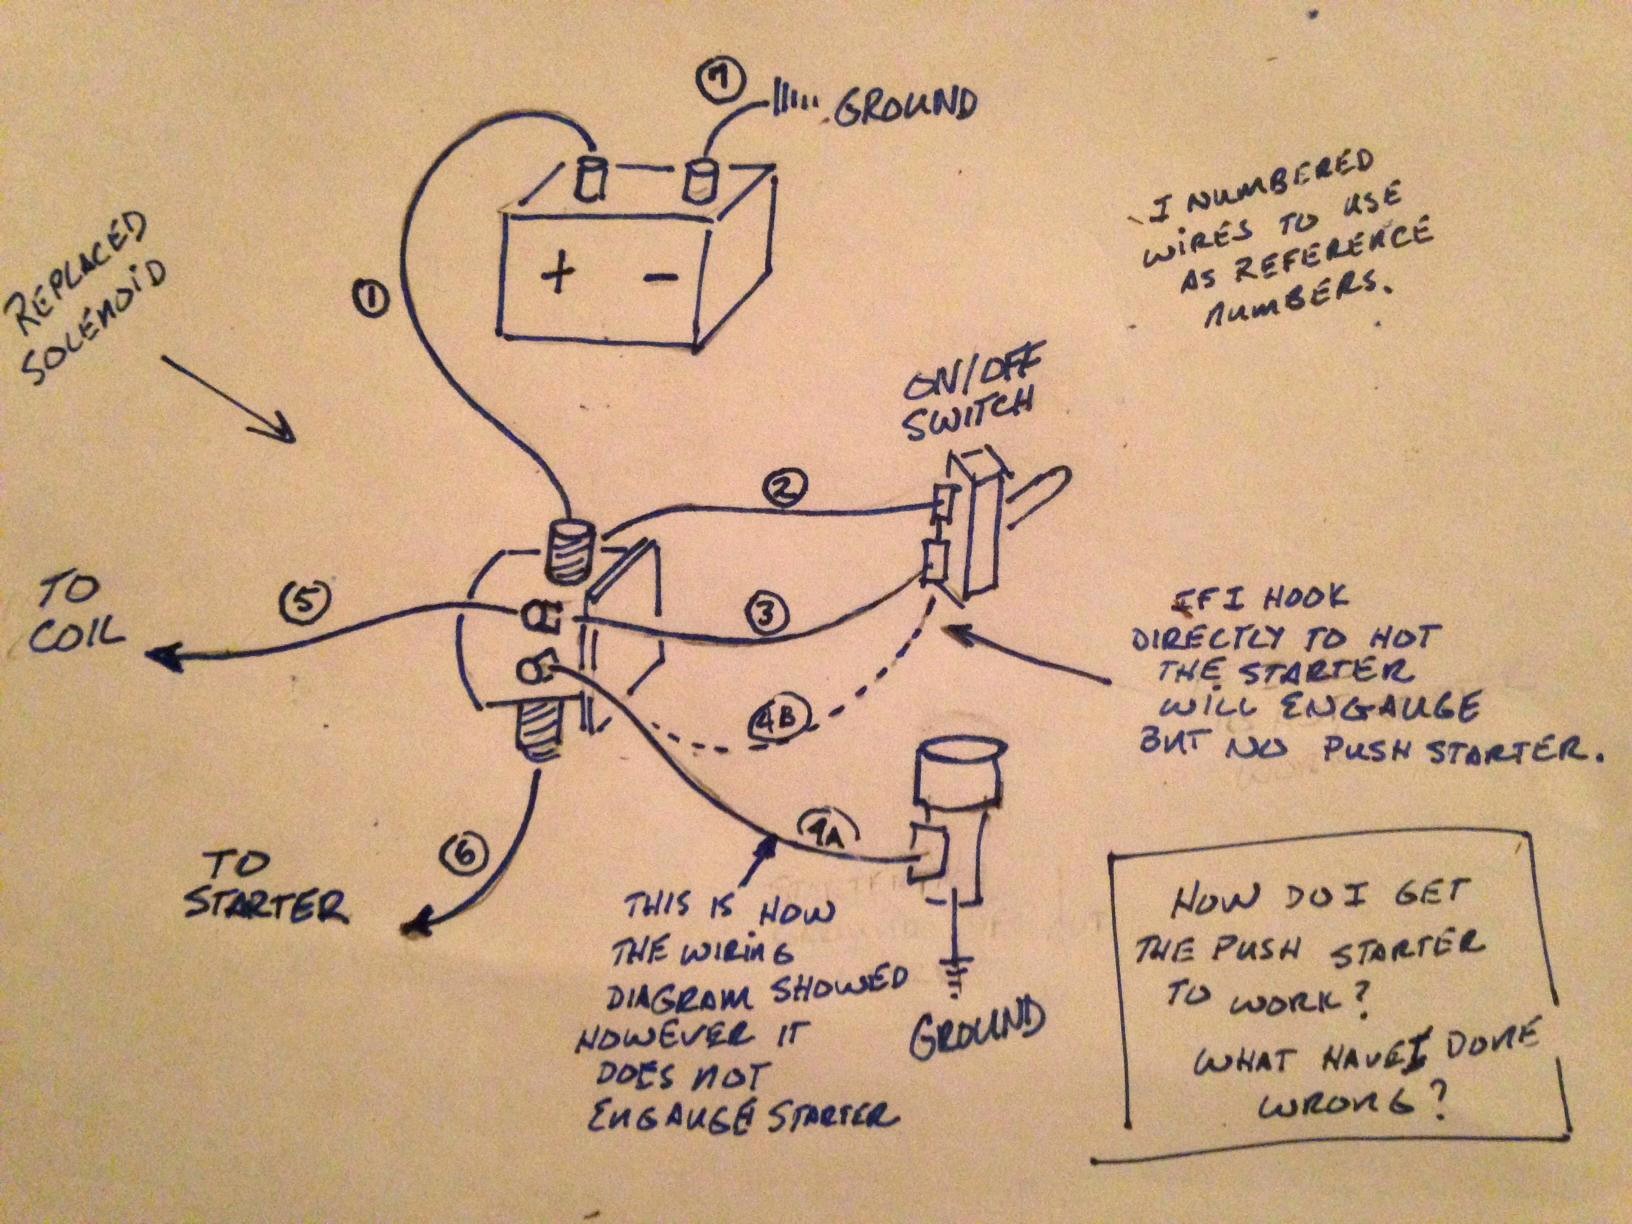 7
GROUND
I NUMBERED
WIRES TO USE
AS REFERENCE
NUMBERS.
REPLACED
SOLENOID
1
+ −
ON/OFF
SWITCH
2
TO
COIL
5
3
IF I HOOK
DIRECTLY TO HOT
THE STARTER
WILL ENGAUGE
BUT NO PUSH STARTER.
4B
4A
TO
STARTER
6
THIS IS HOW
THE WIRING
DIAGRAM SHOWED
HOWEVER IT
DOES NOT
ENGAUGE STARTER
GROUND
HOW DO I GET
THE PUSH STARTER
TO WORK?
WHAT HAVE I DONE
WRONG?